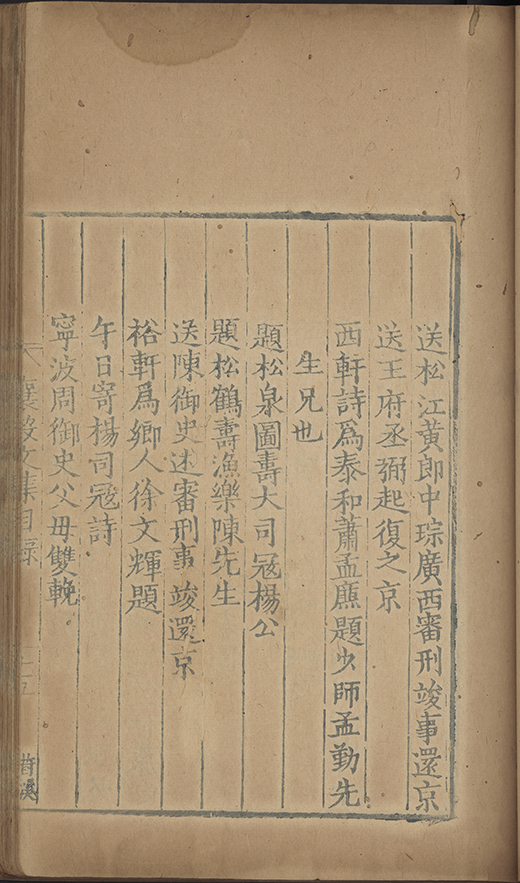 送松江黃郎中琮廣西審刑竣事還京
送王府丞弼起復之京
西軒詩爲泰和蕭孟廌題少師孟勤先
生兄也
題松泉圖壽大司寇楊公
題松鶴壽漁樂陳先生
送陳御史述審刑事竣還京
裕軒爲鄉人徐文輝題
午日寄楊司寇詩
寧波周御史父母雙輓
襄毅文集目錄